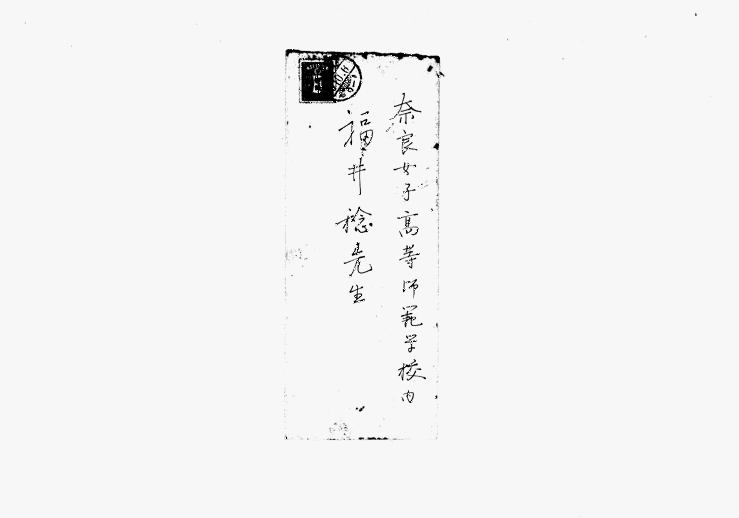 奈良女子高等師範学校内
福井稔先生